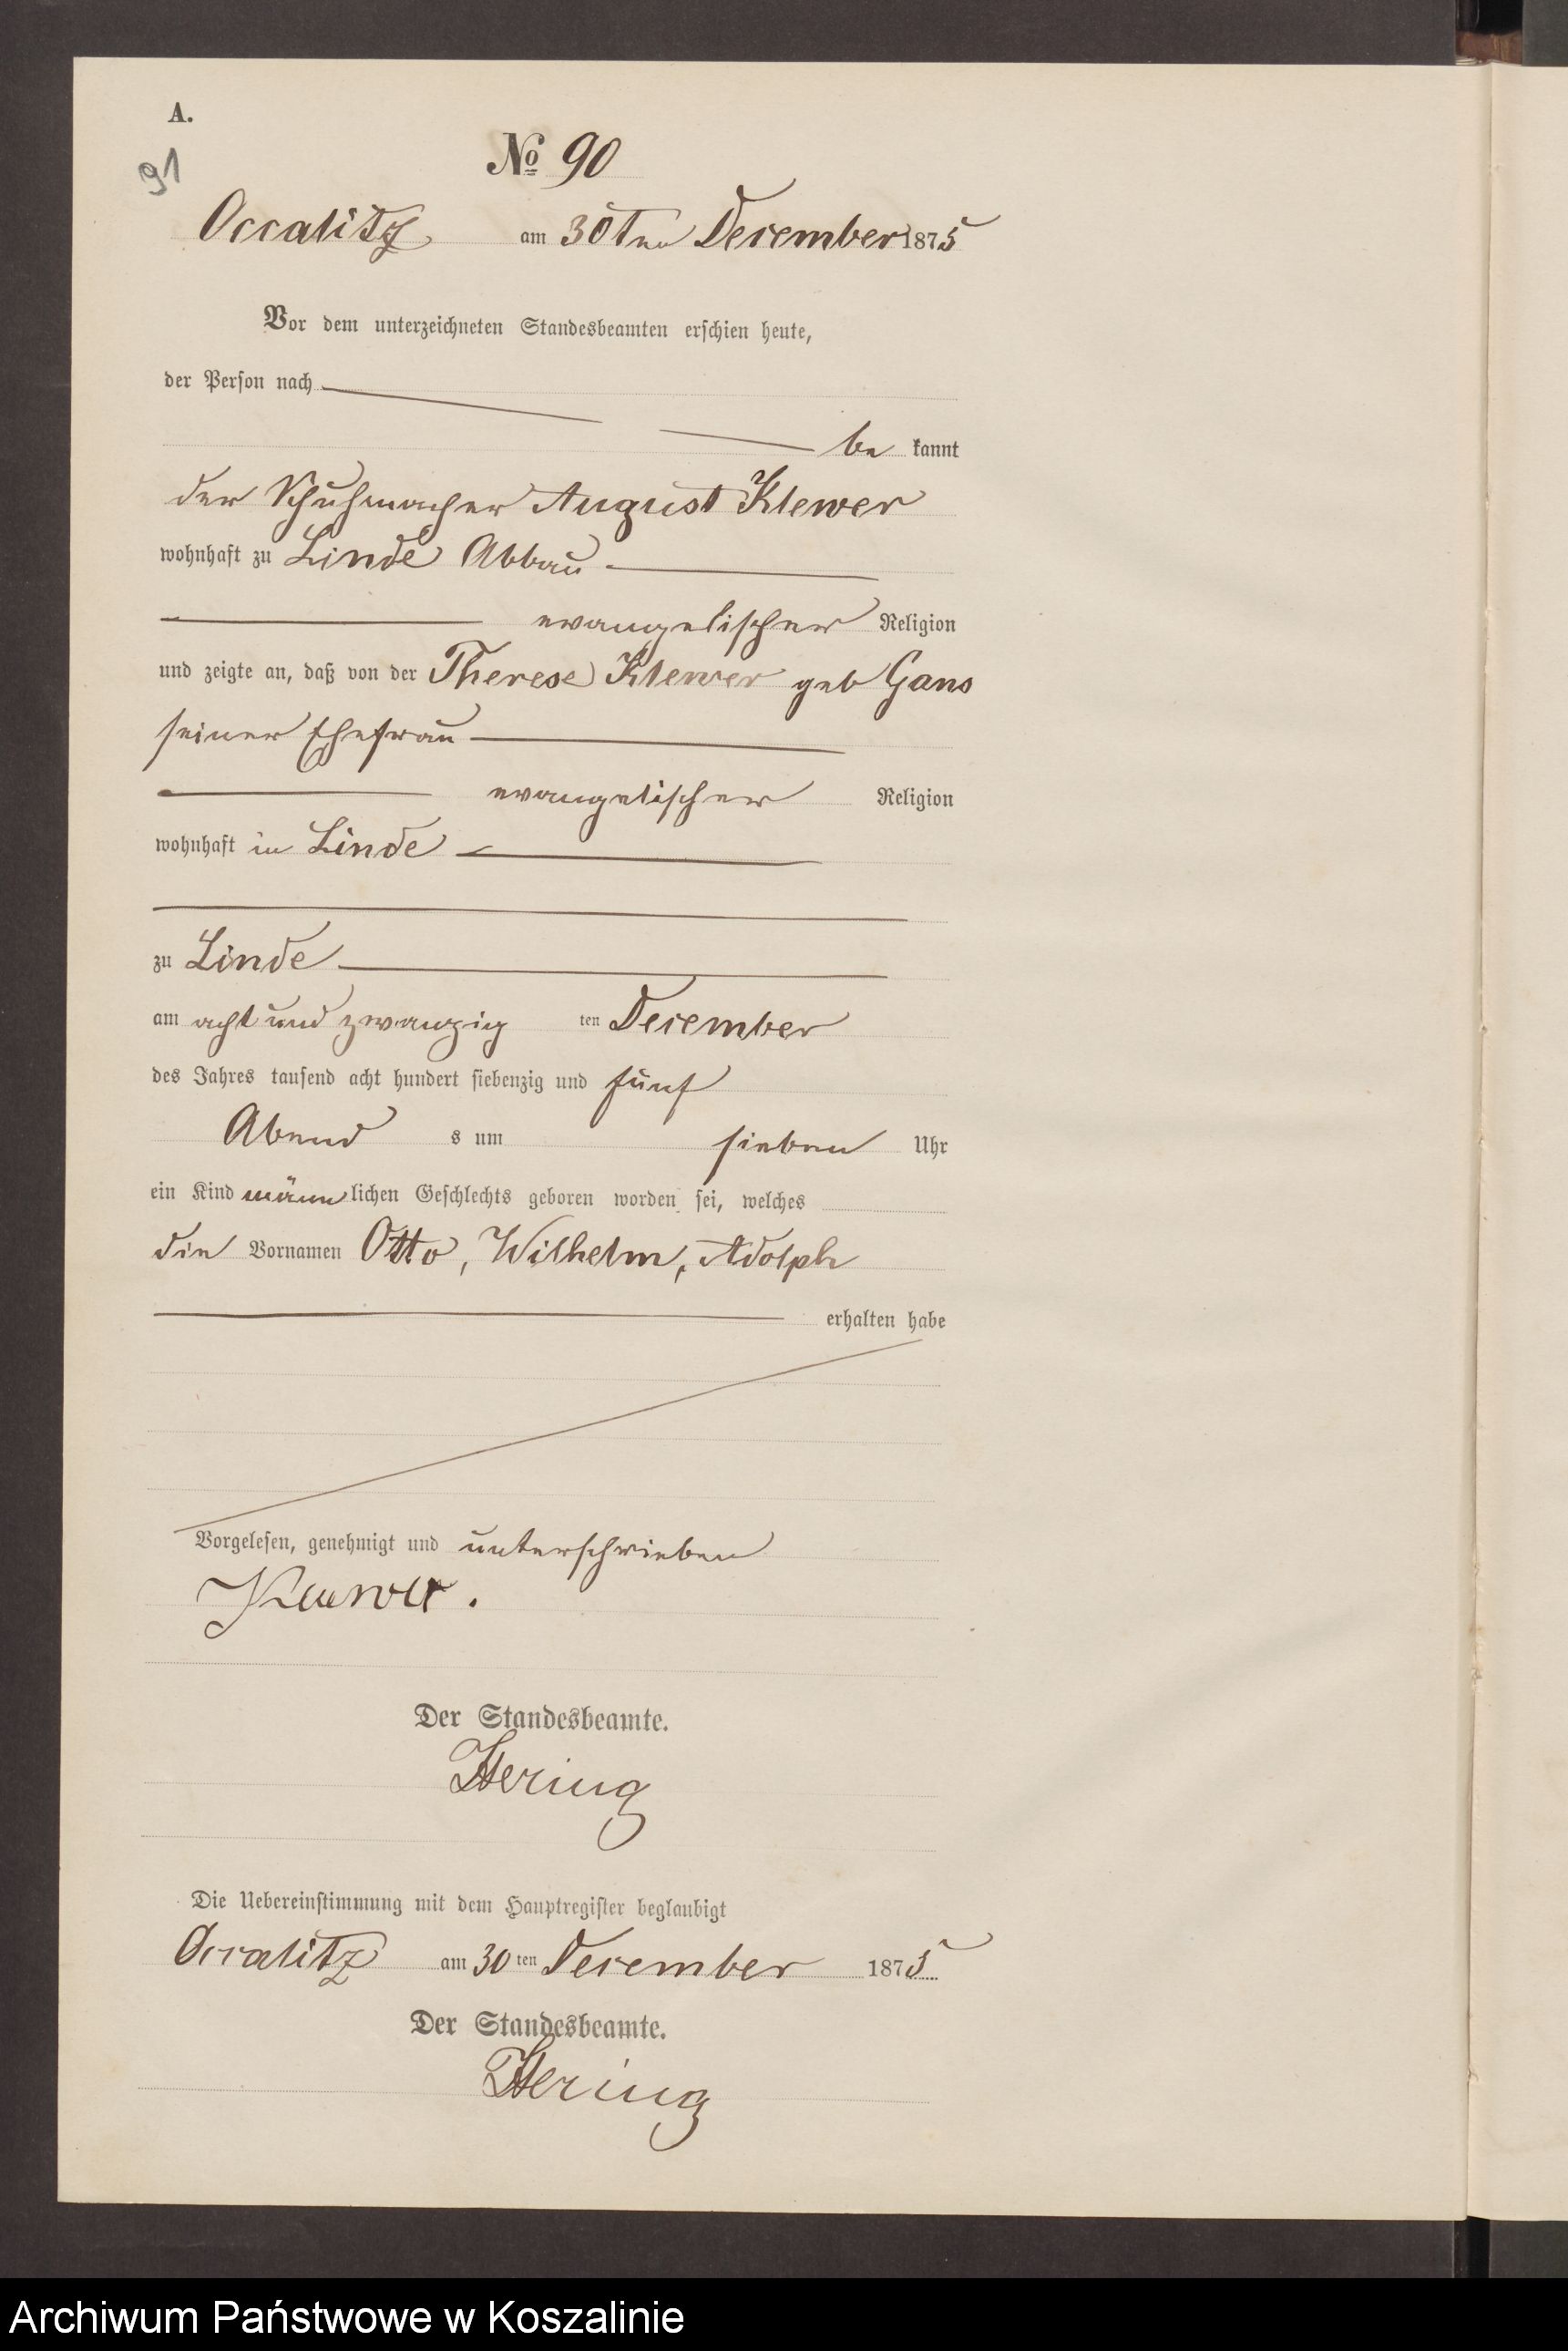 A.
91
No 90
Occalitz am 30ten December 1875
Vor dem unterzeichneten Standesbeamten erschien heute,
der Person nach
be kannt
der Schuhmacher August Klewer
wohnhaft zu Linde Abbau
evangelischer Religion
und zeigte an, daß von der Therese Klewer geb Gans
seiner Ehefrau
evangelischer Religion
wohnhaft in Linde
zu Linde
am acht und zwanzig ten December
des Jahres tausend acht hundert siebenzig und fünf
Abend s um sieben Uhr
ein Kind männ lichen Geschlechts geboren worden sei, welches
die Vornamen Otto, Wilhelm, Adolph
erhalten habe
Vorgelesen, genehmigt und unterschrieben
Der Standesbeamte.
Hering
Die Uebereinstimmung mit dem Hauptregister beglaubigt
Occalitz am 30 ten December 1875
Der Standesbeamte.
Hering
Archiwum Państwowe w Koszalinie